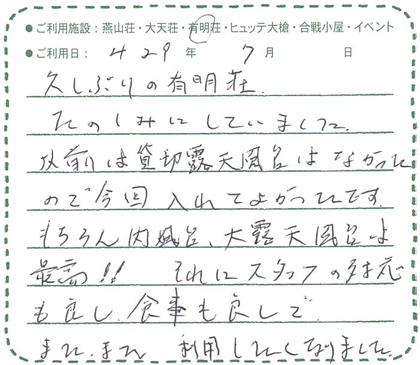 ●ご利用施設：燕山荘・大天荘・有明荘・ヒュッテ大槍・合戦小屋・イベント
●ご利用日：H29年 7月 日
久しぶりの有明荘。
たのしみにしていました。
以前は貸切露天風呂はなかった
ので今回入れてよかったです。
もちろん内風呂、大露天風呂は
最高!! それにスタッフの対応
も良し、食事も良しで
また、また 利用したくなりました。